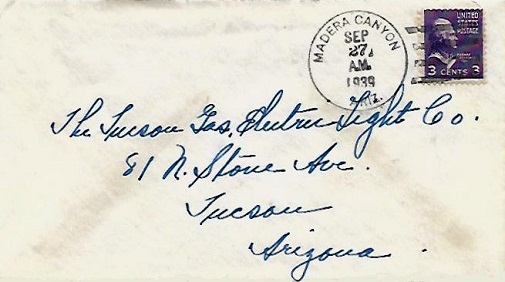 MADERA CANYON
SEP
27
A.M.
1939
Ariz.
UNITED
STATES
POSTAGE
3 CENTS 3
The Tucson Gas, Electric Light Co.
81 N. Stone Ave.
Tucson
Arizona.